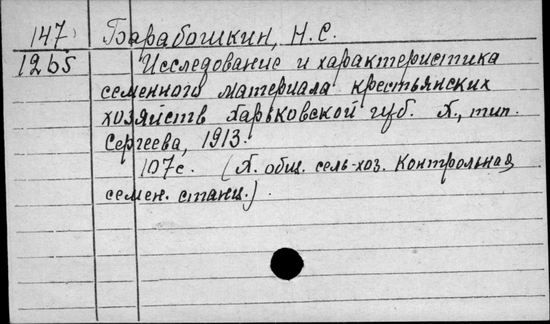 147 Барабошкин, Н.С.
1265 Исследование и характеристика
семенного материала крестьянских
хозяйств Харьковской губ. Х., тип.
Сергеева, 1913.
107с. (Х. общ. сель-хоз. Контрольная
семен. станц.)